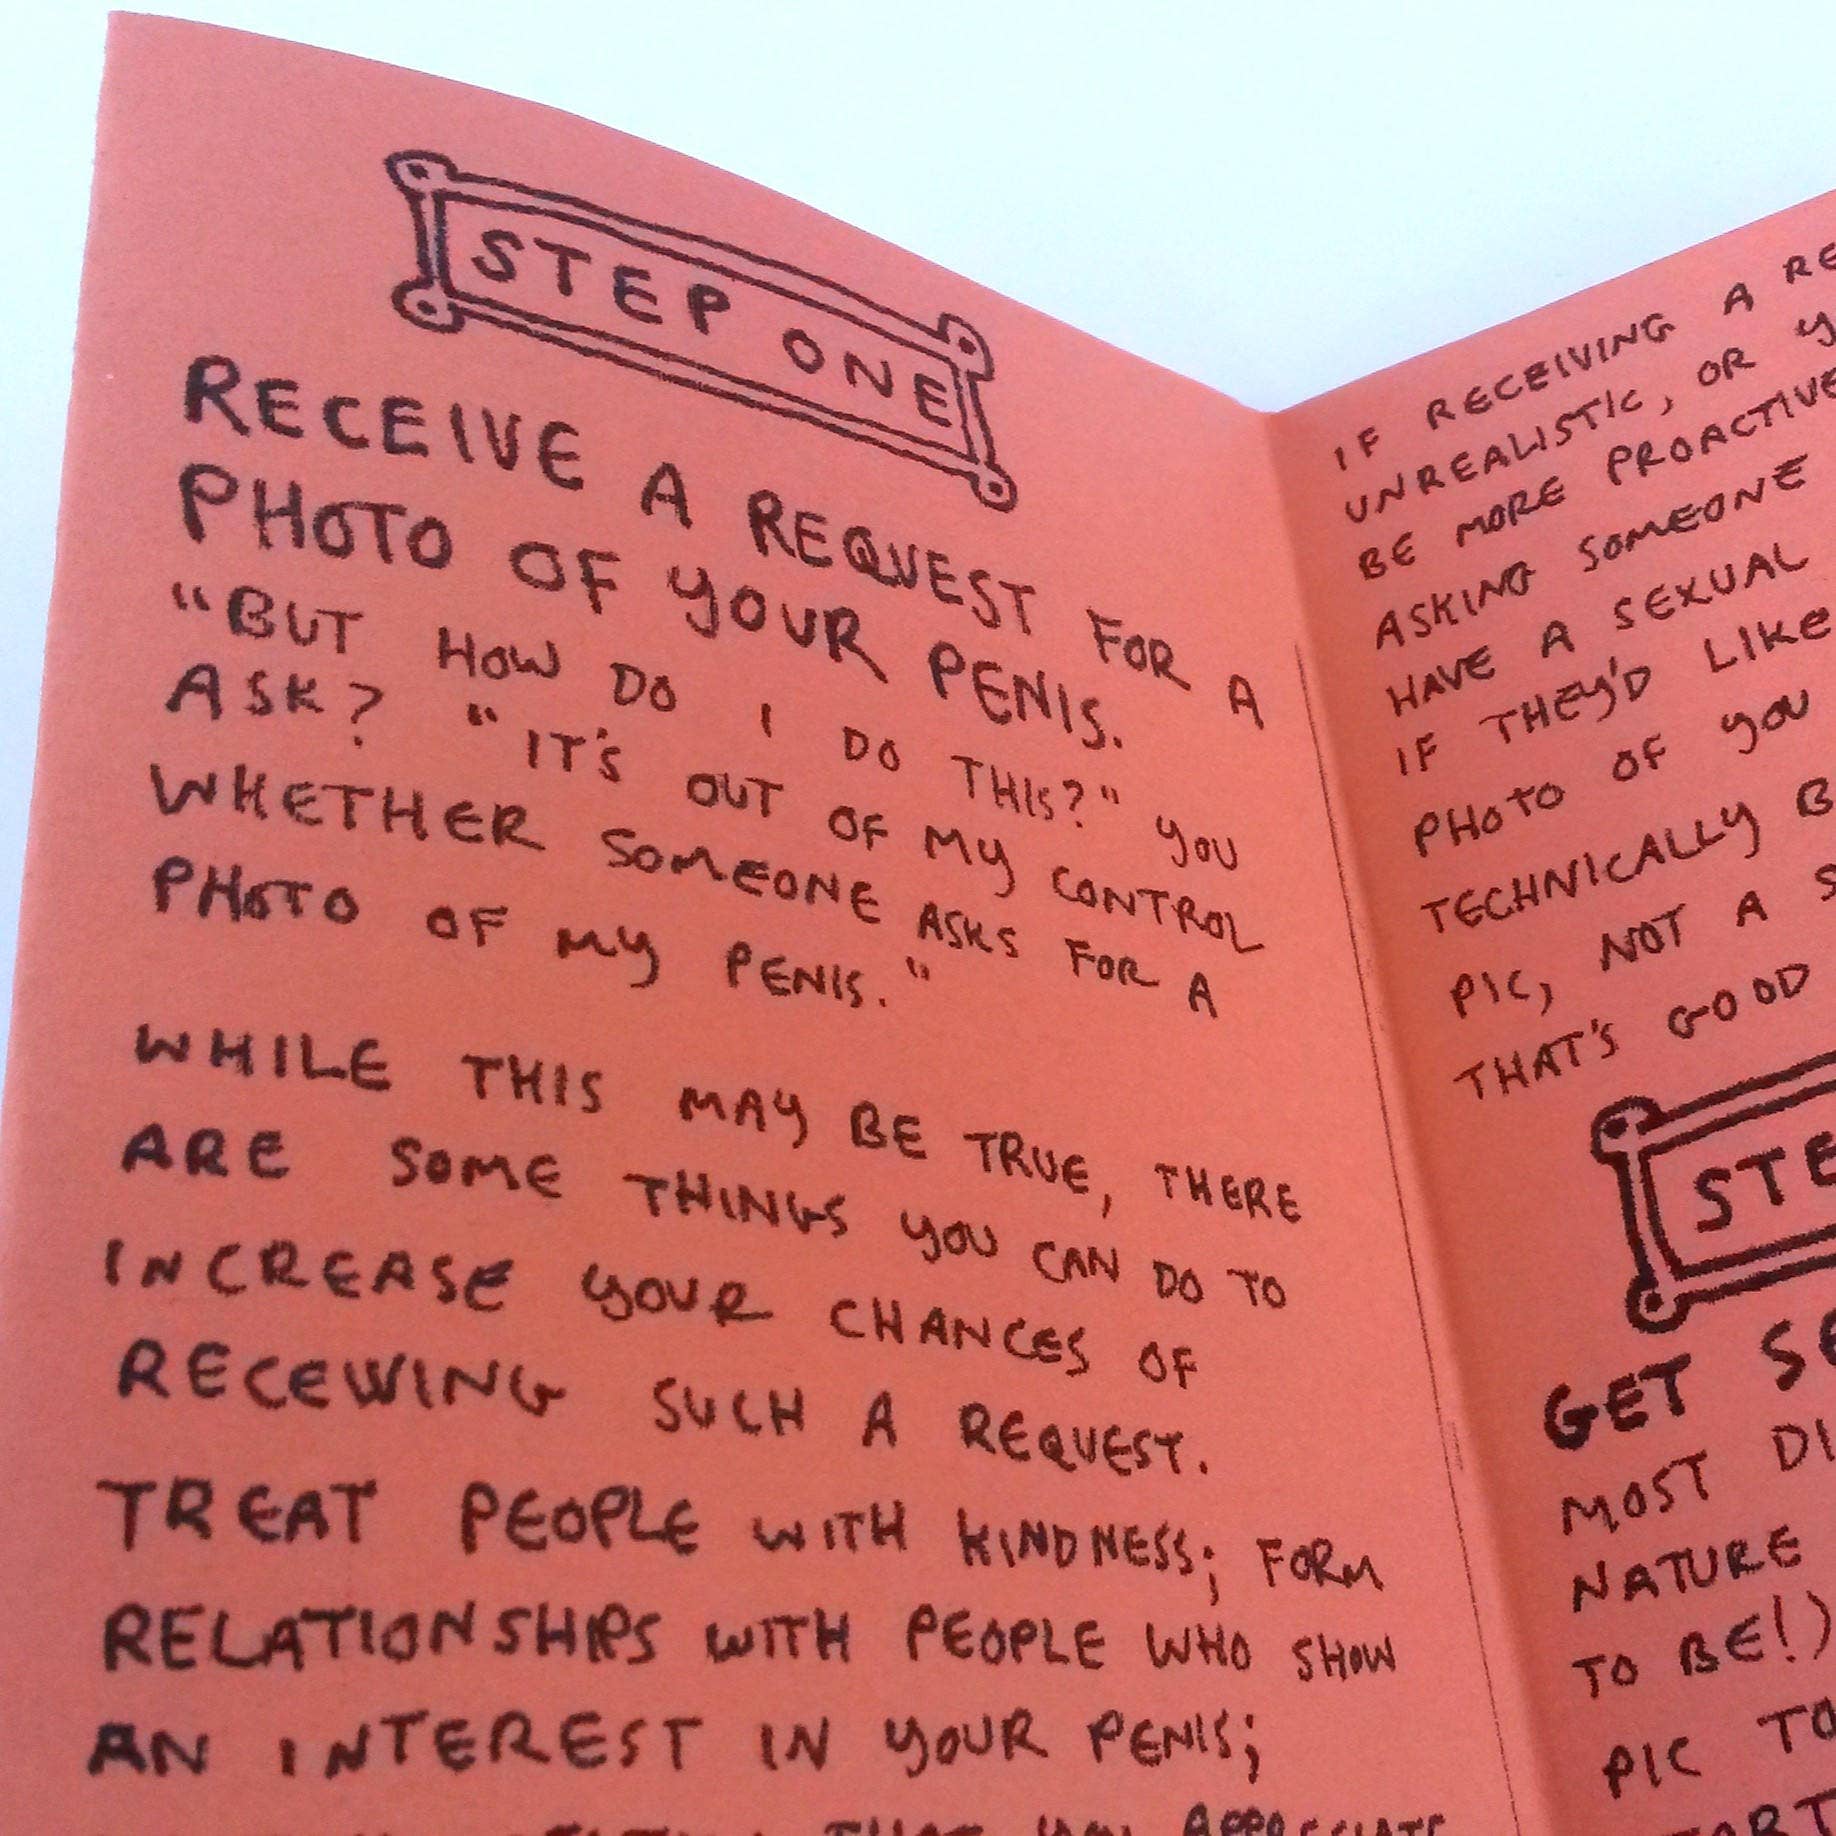 STEP ONE
RECEIVE A REQUEST FOR A
PHOTO OF YOUR PENIS.
"BUT HOW DO I DO THIS?" YOU
ASK? "IT'S OUT OF MY CONTROL
WHETHER SOMEONE ASKS FOR A
PHOTO OF MY PENIS."
WHILE THIS MAY BE TRUE, THERE
ARE SOME THINGS YOU CAN DO TO
INCREASE YOUR CHANCES OF
RECEIVING SUCH A REQUEST.
TREAT PEOPLE WITH KINDNESS; FORM
RELATIONSHIPS WITH PEOPLE WHO SHOW
AN INTEREST IN YOUR PENIS;
THAT YOU APPRECIATE
IF RECEIVING A RE
UNREALISTIC, OR Y
BE MORE PROACTIVE
ASKING SOMEONE
HAVE A SEXUAL
IF THEY'D LIKE
PHOTO OF YOU
TECHNICALLY B
PIC, NOT A S
THAT'S GOOD
STE
GET SE
MOST DI
NATURE
TO BE!)
PIC TO